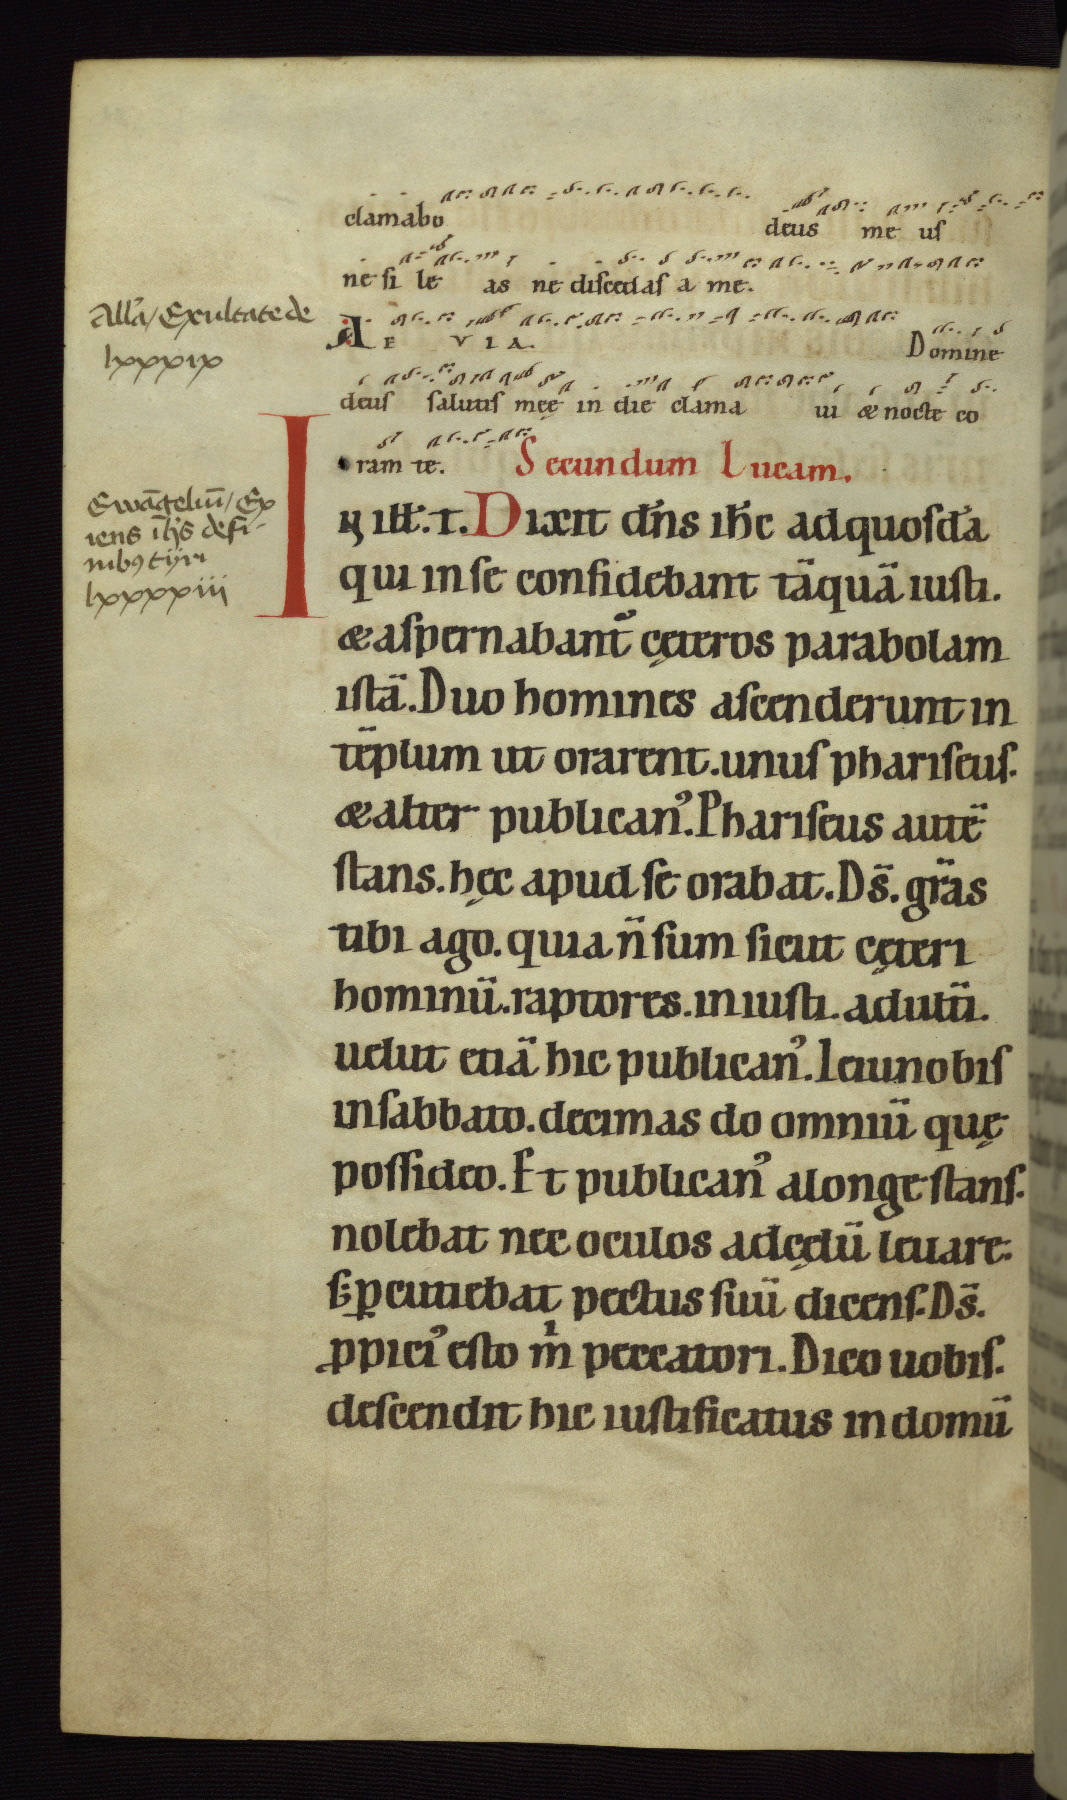 clamabo deus me us
ne si le as ne discedas a me.
A E V I A. Domine
deus salutis meę in die clama ui & nocte co
ram te. Secundum Lucam.
All'a/ Exultate de
lxxxix
Ewāgeliū/ Ex
iens ih's de fi-
nibꝰ tyri
lxxxxiii
IN ill'. t. Dixit dn̄s ih̄c ad quosdā
qui in se confidebant tāquā iusti.
& aspernabant᷑ cęteros parabolam
istā. Duo homines ascenderunt in
tēplum ut orarent. unus phariseus.
& alter publicanꝰ. Phariseus autē
stans. hęc apud se orabat. Ds̄. grās
tibi ago. quia n̄ sum sicut cęteri
hominū. raptores. iniusti. adulti̅.
uelut etiā hic publicanꝰ. Ieiuno bis
in sabbato. decimas do omniū quę
possideo. Et publicanꝰ a longe stans.
nolebat nec oculos ad cęlū leuare.
s; ꝑcutiebat pectus suū dicens. Ds̄.
ꝓpiciꝰ esto m̍ peccatori. Dico uobis.
descendit hic iustificatus in domū